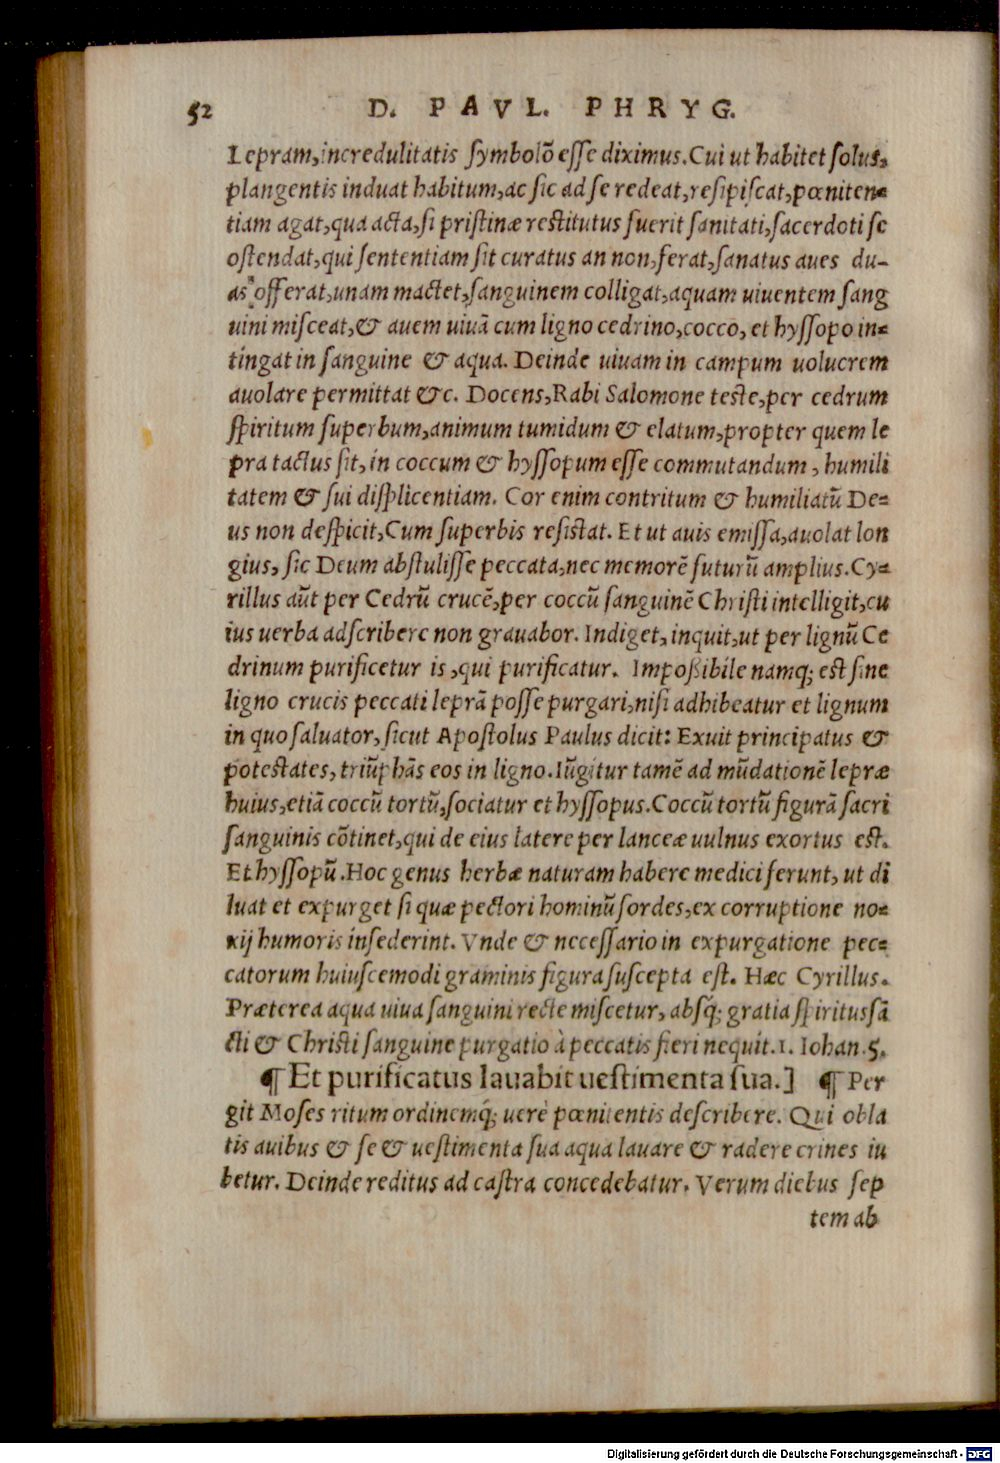 52 D. PAVL. PHRYG.
Lepram, incredulitatis ſymbolõ eſſe diximus. Cui ut habitet ſolus,
plangentis induat habitum, ac ſic ad ſe redeat, reſipiſcat, pœniten-
tiam agat, qua acta, ſi priſtinæ reſtitutus fuerit ſanitati, ſacerdoti ſe
oſtendat, qui ſententiam ſit curatus an non, ferat, ſanatus aues du-
as offerat, unam mactet, ſanguinem colligat, aquam uiuentem ſang
uini miſceat, & auem uiuã cum ligno cedrino, cocco, et hyſſopo in-
tingat in ſanguine & aqua. Deinde uiuam in campum uolucrem
auolare permittat &c. Docens, Rabi Salomone teſte, per cedrum
ſpiritum ſuperbum, animum tumidum & elatum, propter quem le
pra tactus ſit, in coccum & hyſſopum eſſe commutandum, humili
tatem & ſui diſplicentiam. Cor enim contritum & humiliatũ De-
us non deſpicit, Cum ſuperbis reſiſtat. Et ut auis emiſſa, auolat lon
gius, ſic Deum abſtuliſſe peccata, nec memorẽ futurũ amplius. Cy-
rillus aũt per Cedrũ crucẽ, per coccũ ſanguinẽ Chriſti intelligit, cu
ius uerba adſcribere non grauabor. Indiget, inquit, ut per lignũ Ce
drinum purificetur is, qui purificatur. Impoßibile namq; eſt ſine
ligno crucis peccati leprã poſſe purgari, niſi adhibeatur et lignum
in quo ſaluator, ſicut Apoſtolus Paulus dicit: Exuit principatus &
poteſtates, triũphãs eos in ligno. Iũgitur tamẽ ad mũdationẽ lepræ
huius, etiã coccũ tortũ, ſociatur et hyſſopus. Coccũ tortũ figurã ſacri
ſanguinis cõtinet, qui de eius latere per lanceæ uulnus exortus eſt.
Et hyſſopũ. Hoc genus herbæ naturam habere medici ferunt, ut di
luat et expurget ſi quæ pectori hominũ ſordes, ex corruptione no-
xij humoris inſederint. Vnde & neceſſario in expurgatione pec-
catorum huiuſcemodi graminis figura ſuſcepta eſt. Hæc Cyrillus.
Præterea aqua uiua ſanguini recte miſcetur, abſq; gratia ſpiritus ſã
cti & Chriſti ſanguine purgatio à peccatis fieri nequit. 1. Iohan. 5.
¶ Et purificatus lauabit ueſtimenta ſua.] ¶ Per
git Moſes ritum ordinemq́; uerè pœnitentis deſcribere. Qui obla
tis auibus & ſe & ueſtimenta ſua aqua lauare & radere crines iu
betur. Deinde reditus ad caſtra concedebatur. Verum diebus ſep
tem ab
Digitalisierung gefördert durch die Deutsche Forschungsgemeinschaft - DFG